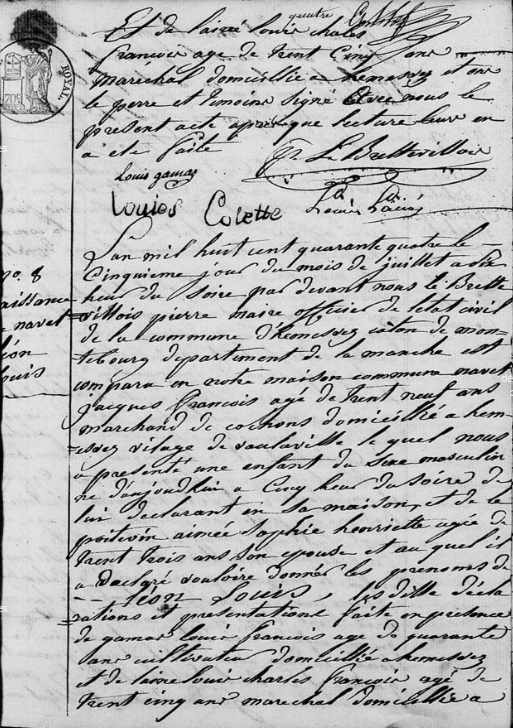 quatre
Et de lainé louis chales
francois age de trent Cinq ans
marechal domicillié a hemesvez et ont
le perre et temoins signé avec nous le
present acte apres que lecture leur en
a eté faite
P. Le Brettevillois
Louis gamas
Louies Colette
Louis Lainé
ROYAL
L'an mil huit cent quarante quatre le
Cinquieme jour du mois de juillet a
heur du Soire par devant nous le Brette
villois pierre maire officier de letat civil
de la commune d'hemesvez canton de mon-
tebourg departement de la manche est
comparu en notre maison commune navet
jacques francois agé de trent neuf ans
marchand de cochons domicillié a hem-
esvez vilage de vaulaville le quel nous
a presenté une enfant du Sexe masculin
né d'aujoudhui a Cinq heur du Soire de
lui declarant en Sa maison, et de le
poitevin aimée Sophie henriette agée de
trent trois ans Son epouse et au quel il
a declaré vouloire donner les prenoms de
léon Louis, les ditte decla
rations et presentations faite en presence
de gamas louis francois age de quarante
ans cultivateur domicillié a hemesvez
et de lainé louis charles francois agé de
trent cinq ans marechal domicillié a
no. 8
aissance
navet
léon
ouis